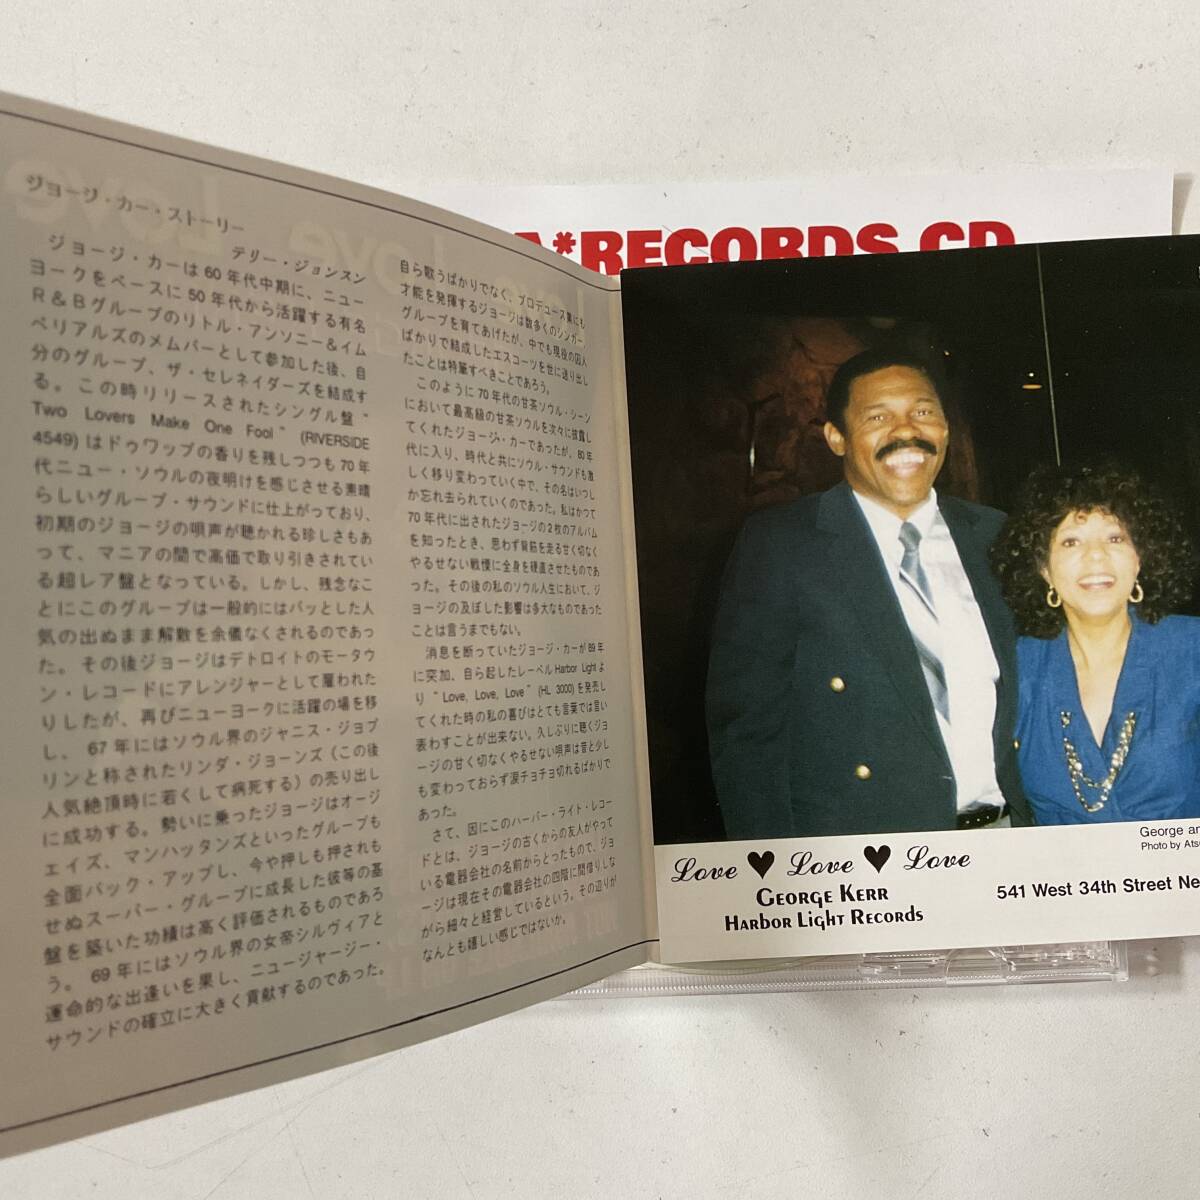 ジョージ・カー・ストーリー
テリー・ジョンスン
ジョージ・カーは60年代中期に、ニュー
ヨークをベースに50年代から活躍する有名
R&Bグループのリトル・アンソニー&イム
ペリアルズのメムバーとして参加した後、自
分のグループ、ザ・セレネイダーズを結成す
る。この時リリースされたシングル盤"
Two Lovers Make One Fool" (RIVERSIDE
4549)はドゥワップの香りを残しつつも70年
代ニュー・ソウルの夜明けを感じさせる素晴
らしいグループ・サウンドに仕上がっており、
初期のジョージの唄声が聴かれる珍しさもあ
って、マニアの間で高価で取り引きされてい
る超レア盤となっている。しかし、残念なこ
とにこのグループは一般的にはパッとした人
気の出ぬまま解散を余儀なくされるのであっ
た。その後ジョージはデトロイトのモータウ
ン・レコードにアレンジャーとして雇われた
りしたが、再びニューヨークに活躍の場を移
し、67年にはソウル界のジャニス・ジョプ
リンと称されたリンダ・ジョーンズ(この後
人気絶頂時に若くして病死する)の売り出し
に成功する。勢いに乗ったジョージはオージ
ェイズ、マンハッタンズといったグループも
全面バック・アップし、今や押しも押されも
せぬスーパー・グループに成長した彼等の基
盤を築いた功績は高く評価されるものであろ
う。69年にはソウル界の女帝シルヴィアと
運命的な出逢いを果し、ニュージャージー・
サウンドの確立に大きく貢献するのであった。
自ら歌うばかりでなく、プロデュース業にも
才能を発揮するジョージは数多くのシンガー、
グループを育てあげたが、中でも現役の囚人
ばかりで結成したエスコーツを世に送り出し
たことは特筆すべきことであろう。
このように70年代の甘茶ソウル・シーン
において最高級の甘茶ソウルを次々に披露し
てくれたジョージ・カーであったが、80年
代に入り、時代と共にソウル・サウンドも激
しく移り変わっていく中で、その名はいつし
か忘れ去られていくのであった。私はかつて
70年代に出されたジョージの2枚のアルバム
を知ったとき、思わず背筋を走る甘く切なく
やるせない戦慄に全身を硬直させたものであ
った。その後の私のソウル人生において、ジ
ョージの及ぼした影響は多大なものであった
ことは言うまでもない。
消息を断っていたジョージ・カーが89年
に突如、自ら起したレーベルHarbor Lightよ
り"Love, Love, Love"(HL 3000)を発売し
てくれた時の私の喜びはとても言葉では言い
表わすことが出来ない。久しぶりに聴くジョ
ージの甘く切なくやるせない唄声は昔と少し
も変わっておらず涙チョチョ切れるばかりで
あった。
さて、因にこのハーバー・ライト・レコー
ドとは、ジョージの古くからの友人がやって
いる電器会社の名前からとったもので、ジョ
ージは現在その電器会社の四階に間借りしな
がら細々と経営しているという。その辺りが
なんとも嬉しい感じではないか。
A*RECORDS CD
George an
Photo by Ats
Love ♥ Love ♥ Love
GEORGE KERR
HARBOR LIGHT RECORDS
541 West 34th Street Ne